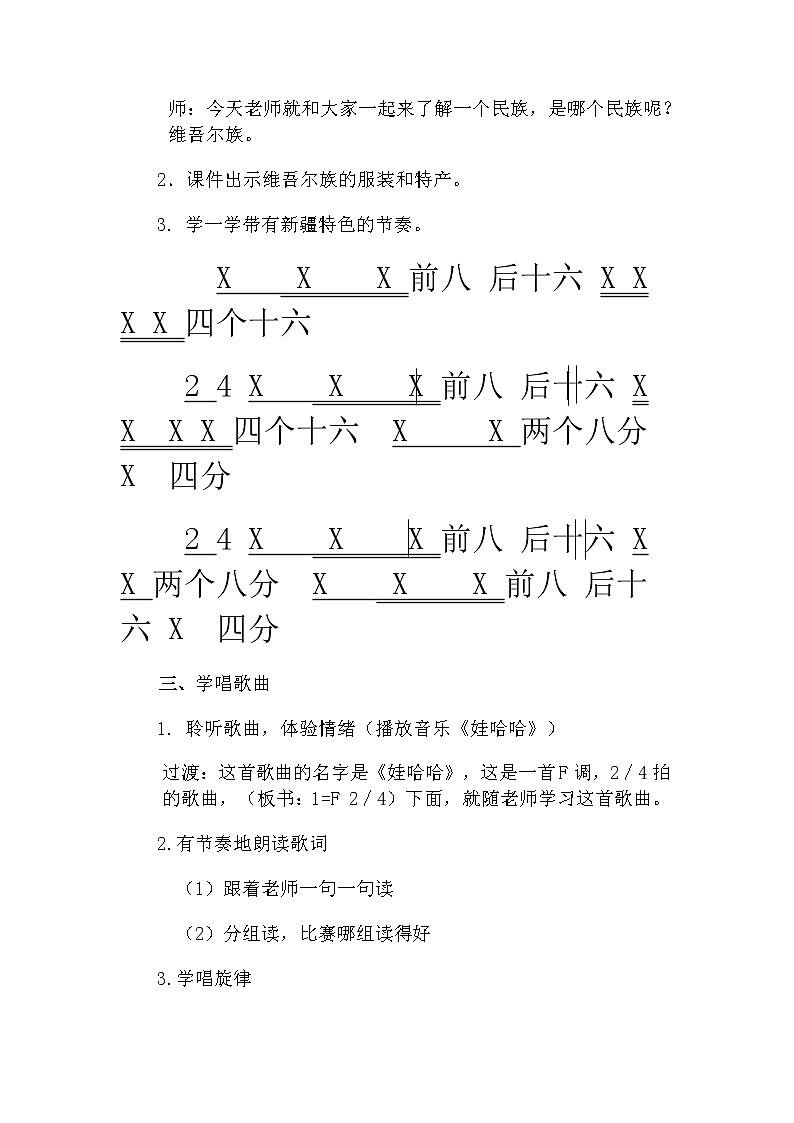 师：今天老师就和大家一起来了解一个民族，是哪个民族呢？
维吾尔族。
2．课件出示维吾尔族的服装和特产。
3. 学一学带有新疆特色的节奏。
X X X 前八 后十六 X X
X X 四个十六
2 4 X X X 前八 后十六 X
X X X 四个十六 X X 两个八分
X 四分
2 4 X X X 前八 后十六 X
X 两个八分 X X X 前八 后十
六 X 四分
三、学唱歌曲
1. 聆听歌曲，体验情绪（播放音乐《娃哈哈》）
过渡：这首歌曲的名字是《娃哈哈》，这是一首F 调，2／4 拍
的歌曲，（板书：1=F 2／4）下面，就随老师学习这首歌曲。
2.有节奏地朗读歌词
（1）跟着老师一句一句读
（2）分组读，比赛哪组读得好
3.学唱旋律